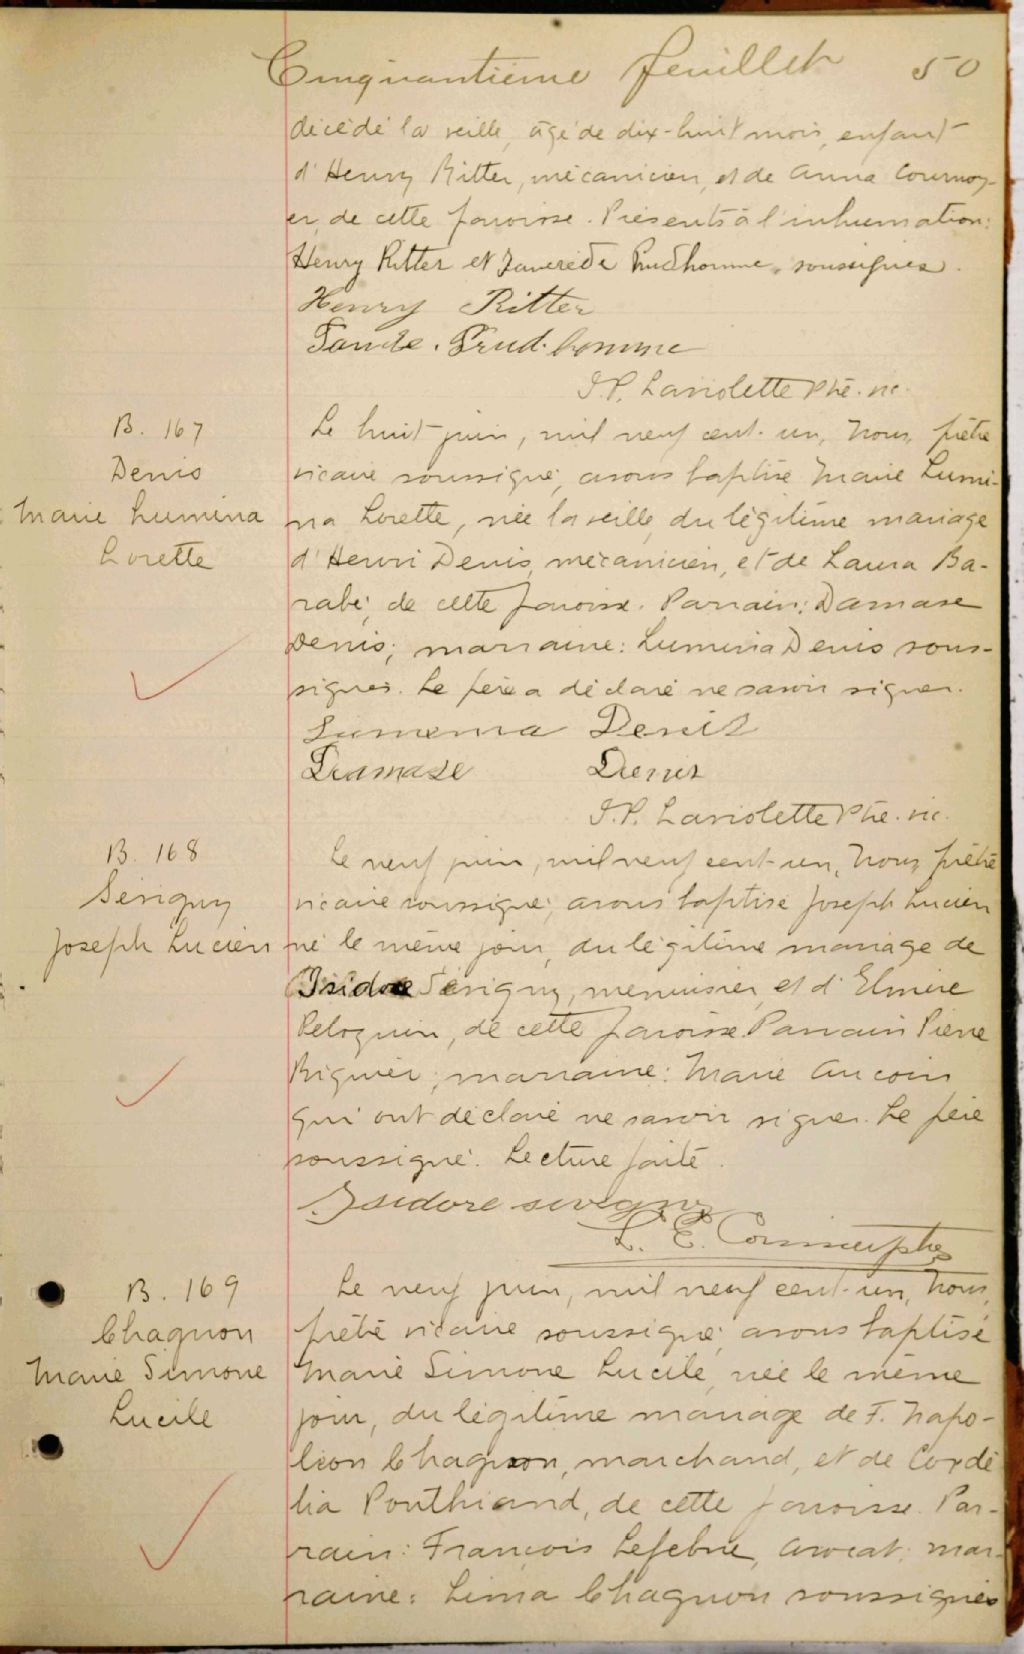 Cinquantième feuillet 50
décédé la veille, âgé de dix-huit mois, enfant
d'Henry Ritter, mécanicien, et de Anna Cournoy-
er, de cette paroisse. Présents à l'inhumation:
Henry Ritter et Prudhomme, soussignés.
Henry Ritter
Prud'homme
J.P. Laviolette Ptre. vic.
B. 167
Denis
Marie Lumina
Lorette
Le huit juin, mil neuf cent-un, Nous, prêtre
vicaire soussigné, avons baptisé Marie Lumi-
na Lorette, née la veille, du légitime mariage
d'Henri Denis, mécanicien, et de Laura Ba-
rabé, de cette paroisse. Parrain: Damase
Denis; marraine: Lumina Denis sous-
signés. Le père a déclaré ne savoir signer.
Lumema Denis
Damase Denis
J.P. Laviolette Ptre. vic.
B. 168
Sévigny
Joseph Lucien
Le neuf juin, mil neuf cent-un, Nous, prêtre
vicaire soussigné, avons baptisé Joseph Lucien
né le même jour, du légitime mariage de
Isidore Sévigny, menuisier, et d'Elmire
Peloquin, de cette paroisse. Parrain Pierre
marraine: Marie Aucoin
qui ont déclaré ne savoir signer. Le père
soussigné. Lecture faite.
Isidore sevigny
L. E. ptre
B. 169
Chagnon
Marie Simone
Lucile
Le neuf juin, mil neuf cent-un, Nous,
prêtre vicaire soussigné, avons baptisé
Marie Simone Lucile, née le même
jour, du légitime mariage de F. Napo-
léon Chagnon, marchand, et de Cordé
lia Ponthiand, de cette paroisse. Par-
rain: François Lefebvre, avocat; mar-
raine: Lima Chagnon soussignés